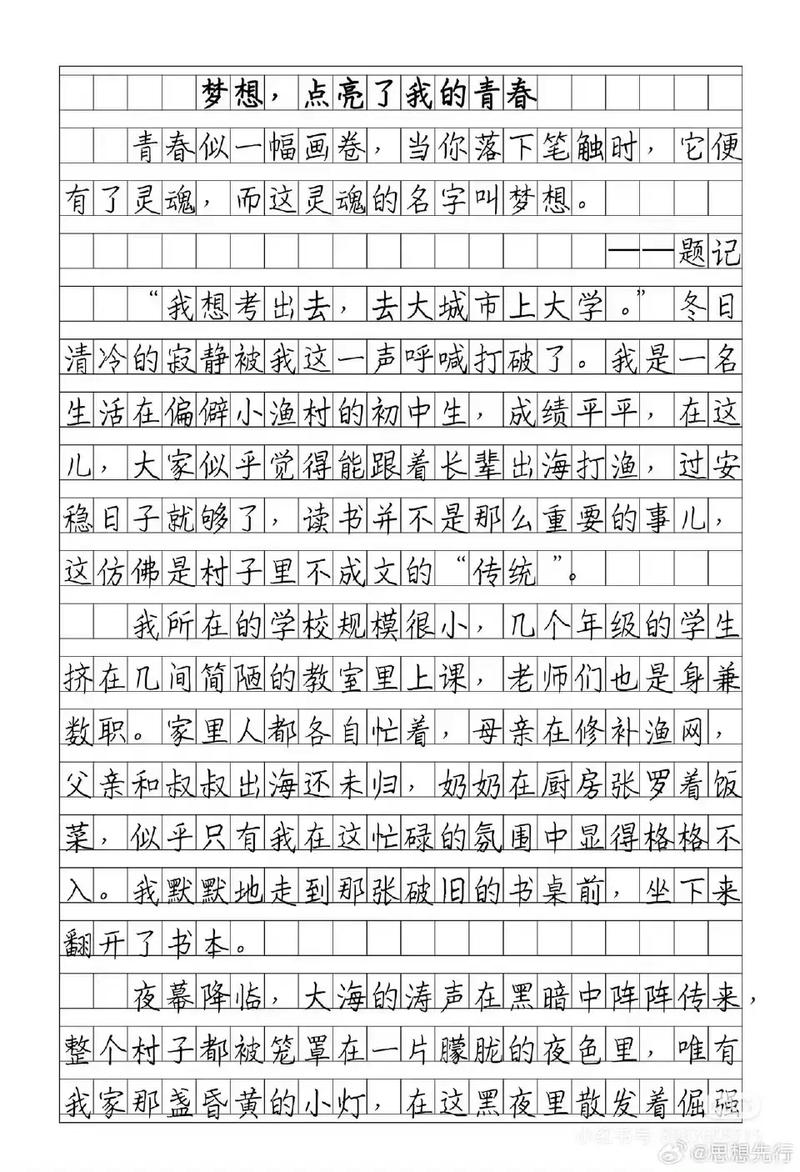 梦想，点亮了我的青春
青春似一幅画卷，当你落下笔触时，它便
有了灵魂，而这灵魂的名字叫梦想。
——题记
“我想考出去，去大城市上大学。”冬日
清冷的寂静被我这一声呼喊打破了。我是一名
生活在偏僻小渔村的初中生，成绩平平，在这
儿，大家似乎觉得能跟着长辈出海打渔，过安
稳日子就够了，读书并不是那么重要的事儿，
这仿佛是村子里不成文的“传统”。
我所在的学校规模很小，几个年级的学生
挤在几间简陋的教室里上课，老师们也是身兼
数职。家里人都各自忙着，母亲在修补渔网，
父亲和叔叔出海还未归，奶奶在厨房张罗着饭
菜，似乎只有我在这忙碌的氛围中显得格格不
入。我默默地走到那张破旧的书桌前，坐下来
翻开了书本。
夜幕降临，大海的涛声在黑暗中阵阵传来，
整个村子都被笼罩在一片朦胧的夜色里，唯有
我家那盏昏黄的小灯，在这黑夜里散发着倔强
小红书号
@思想先行